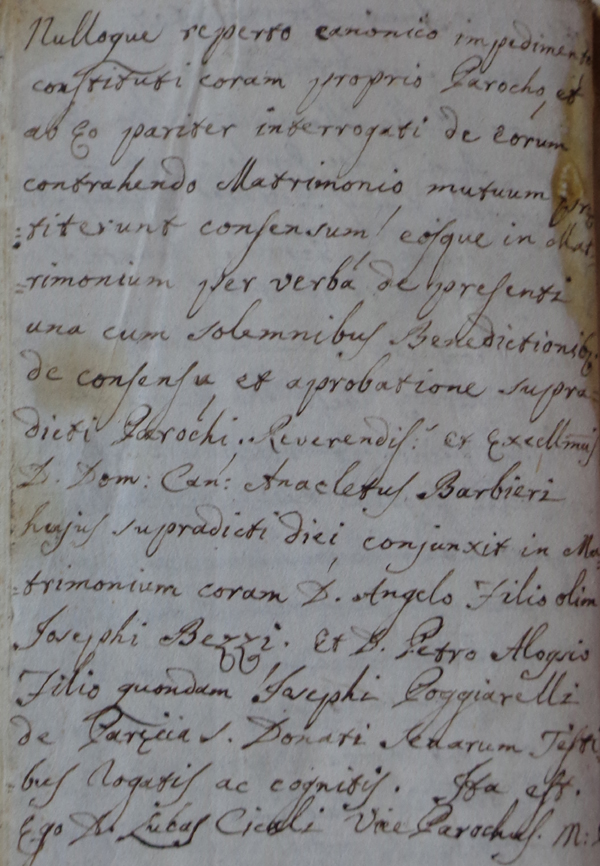 Nulloque reperto canonico impediment
constituti coram proprio Parocho, et
ab Eo pariter interrogati de Eorum
contrahendo Matrimonio, mutuum pre
=titerunt consensum, eosque in Mat
=rimonium per verba de presenti
una cum solemnibus Benedictionib
de consensu et aprobatione supra
dicti Parochi, Reverendis: et Excellmus
D. Dom: Can: Anacletus Barbieri
hujus supradicti diei conjunxit in Ma
=trimonium coram D. Angelo Filio olim
Josephi Bezzi. Et D. Petro Aloysio
Filio quondam Josephi Poggiarelli
de S. Donati Senarum Testi
=bus rogatis ac cognitis. Ita est.
Ego D. Lucas Cicali Vice Parochus. M: